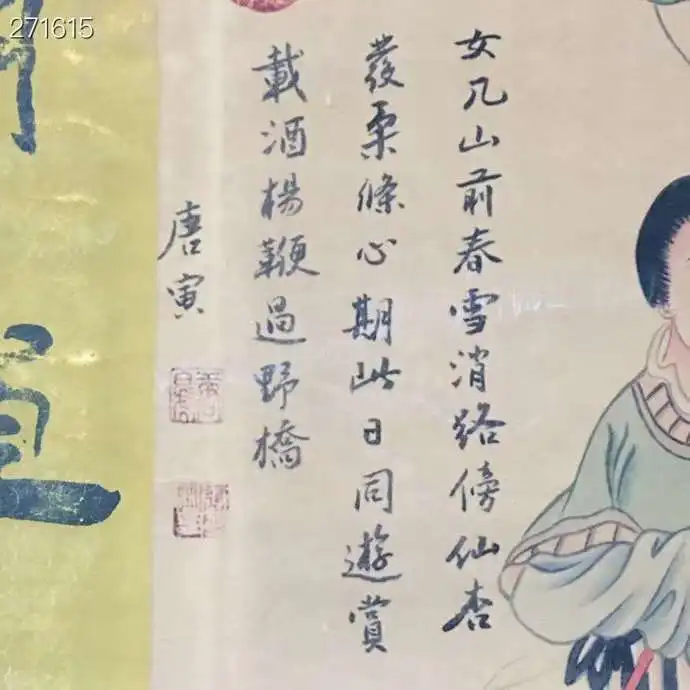 271615
女几山前春雪消路傍仙杏
發柔條心期此日同遊賞
載酒楊鞭過野橋
唐寅